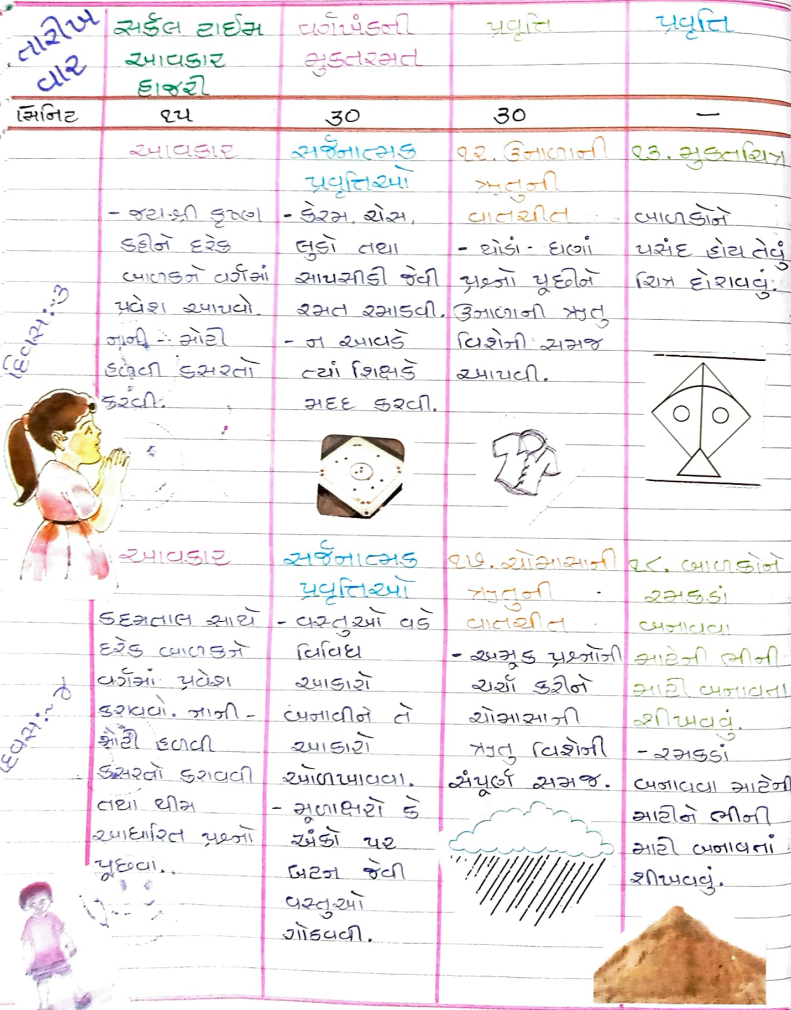 તારીખ
વાર
સર્કલ ટાઈમ
આવકાર
હાજરી
વર્ગખંડની
મુક્તરમત
પ્રવૃત્તિ
પ્રવૃત્તિ
મિનિટ
૧૫
30
30
–
દિવસ:-૩
આવકાર
- જય.શ્રી કૃષ્ણ
કહીને દરેક
બાળકને વર્ગમાં
પ્રવેશ આપવો.
નાની - મોટી
હળવી કસરતો
કરવી.
સર્જનાત્મક
પ્રવૃત્તિઓ
- કેરમ, ચેસ,
લુડો તથા
સાપસીડી જેવી
રમત રમાડવી.
- ન આવડે
ત્યાં શિક્ષકે
મદદ કરવી.
૧૨. ઉનાળાની
ઋતુની
વાતચીત
- થોડાં - ઘણાં
પ્રશ્નો પૂછીને
ઉનાળાની ઋતુ
વિશેની સમજ
આપવી.
૧૩. મુક્તચિત્ર
બાળકોને
પસંદ હોય તેવું
ચિત્ર દોરાવવું.
દિવસ:-૪
આવકાર
કદમતાલ સાથે
દરેક બાળકને
વર્ગમાં પ્રવેશ
કરાવવો. નાની -
મોટી હળવી
કસરતો કરાવવી
તથા થીમ
આધારિત પ્રશ્નો
પૂછવા..
સર્જનાત્મક
પ્રવૃત્તિઓ
- વસ્તુઓ વડે
વિવિધ
આકારો
બનાવીને તે
આકારો
ઓળખાવવા.
- મૂળાક્ષરો કે
અંકો પર
બટન જેવી
વસ્તુઓ
ગોઠવવી.
૧૭. ચોમાસાની
ઋતુની
વાતચીત
- અમૂક પ્રશ્નોની
ચર્ચા કરીને
ચોમાસાની
ઋતુ વિશેની
સંપૂર્ણ સમજ.
૧૮. બાળકોને
રમકડાં
બનાવવા
માટેની ભીની
માટી બનાવતા
શીખવવું.
- રમકડાં
બનાવવા માટેની
માટીને ભીની
માટી બનાવતાં
શીખવવું.